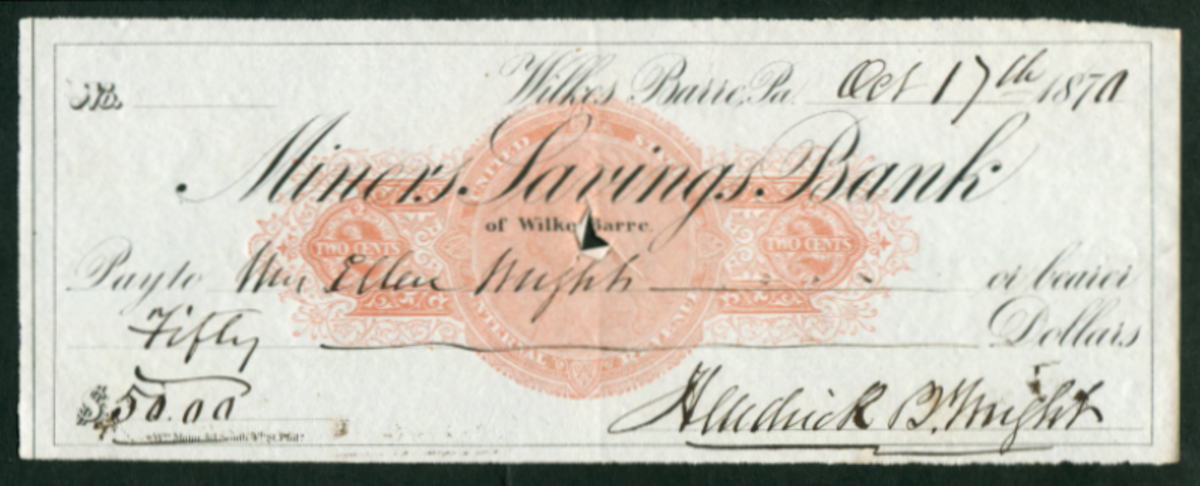 No. Wilkes Barre, Pa. Oct 17th 1870
Miners Savings Bank
of Wilkes Barre.
UNITED STATES
TWO CENTS TWO CENTS
Pay to Ellen Wright or bearer
Fifty Dollars
INTERNAL REVENUE
$50.00 Hendrick B. Wright